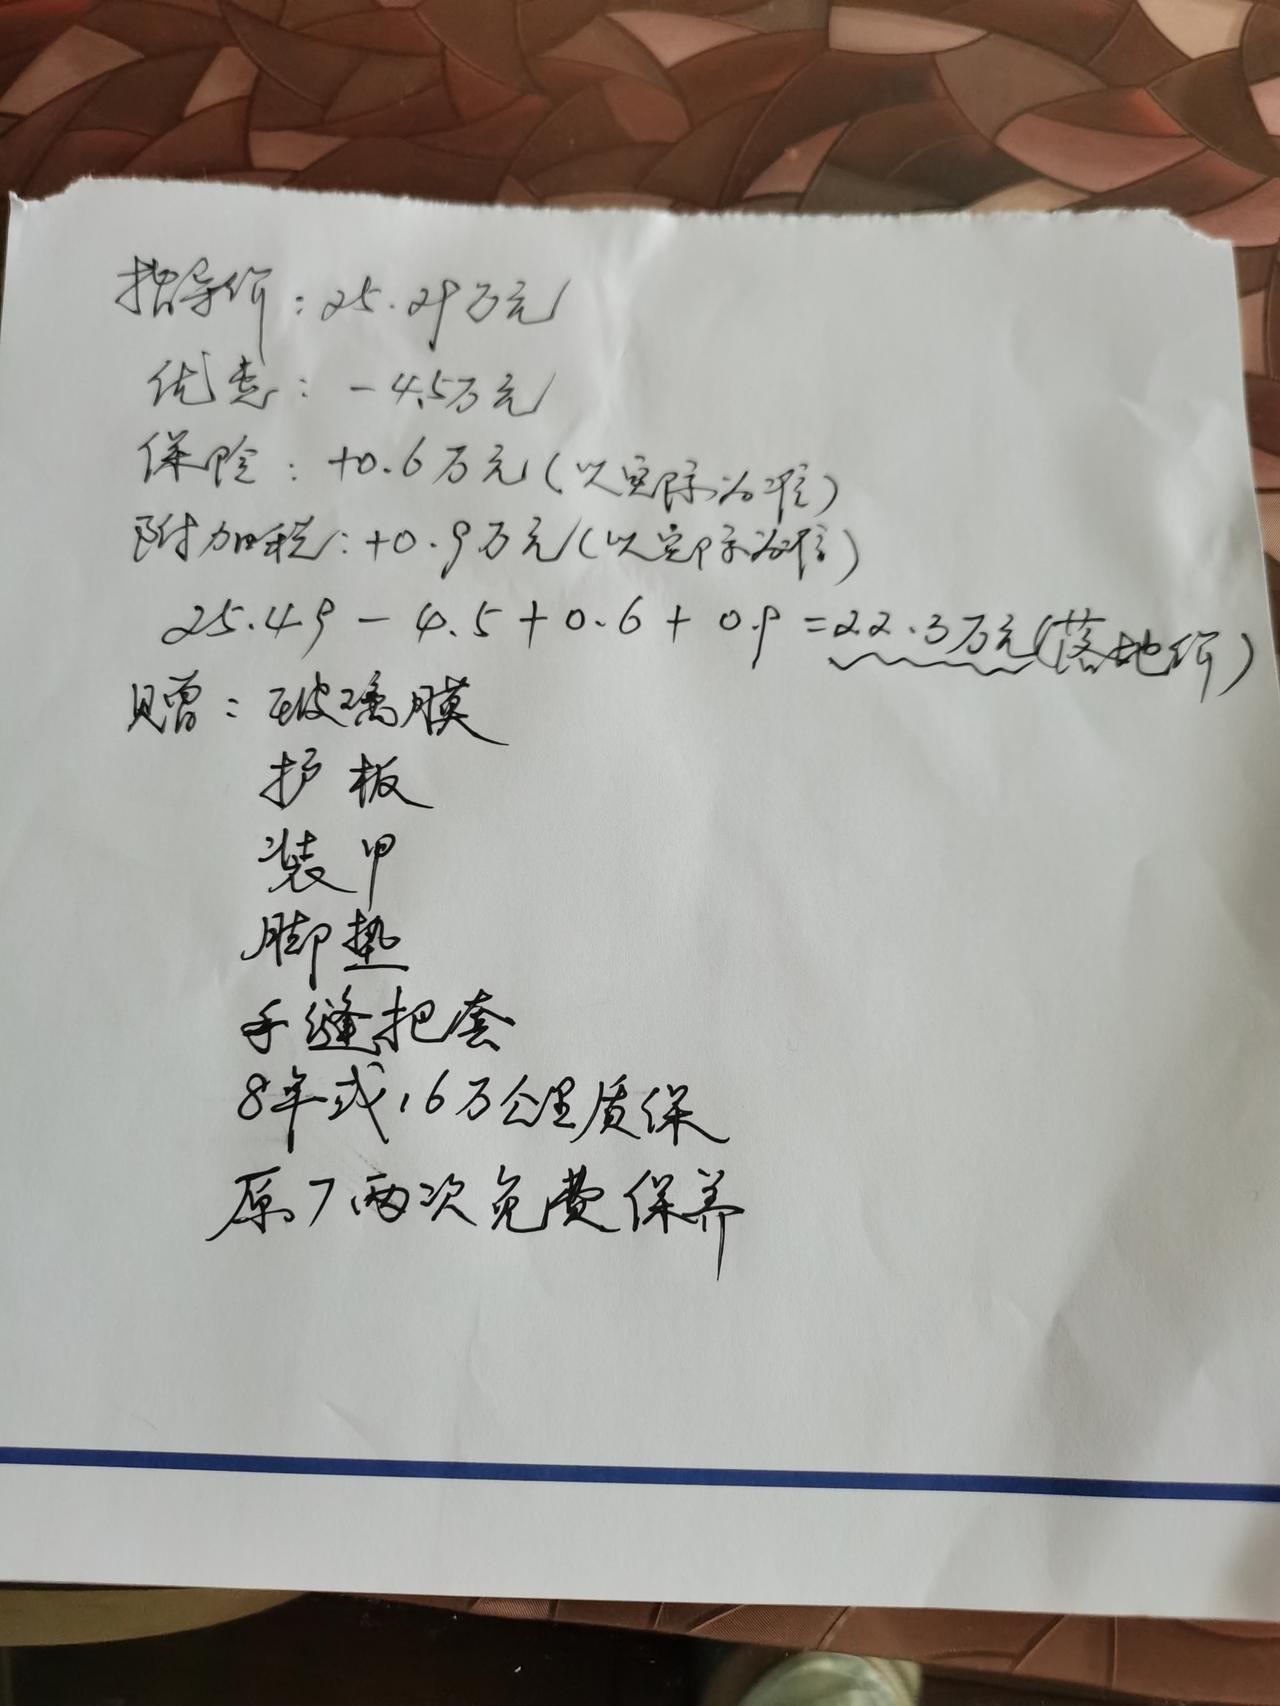 指导价：25.29万元
优惠：-4.5万元
保险：+0.6万元（以实际为准）
附加税：+0.9万元（以实际为准）
25.49-4.5+0.6+0.9=22.3万元（落地价）
赠：玻璃膜
护板
装甲
脚垫
手缝把套
8年或16万公里质保
原厂两次免费保养